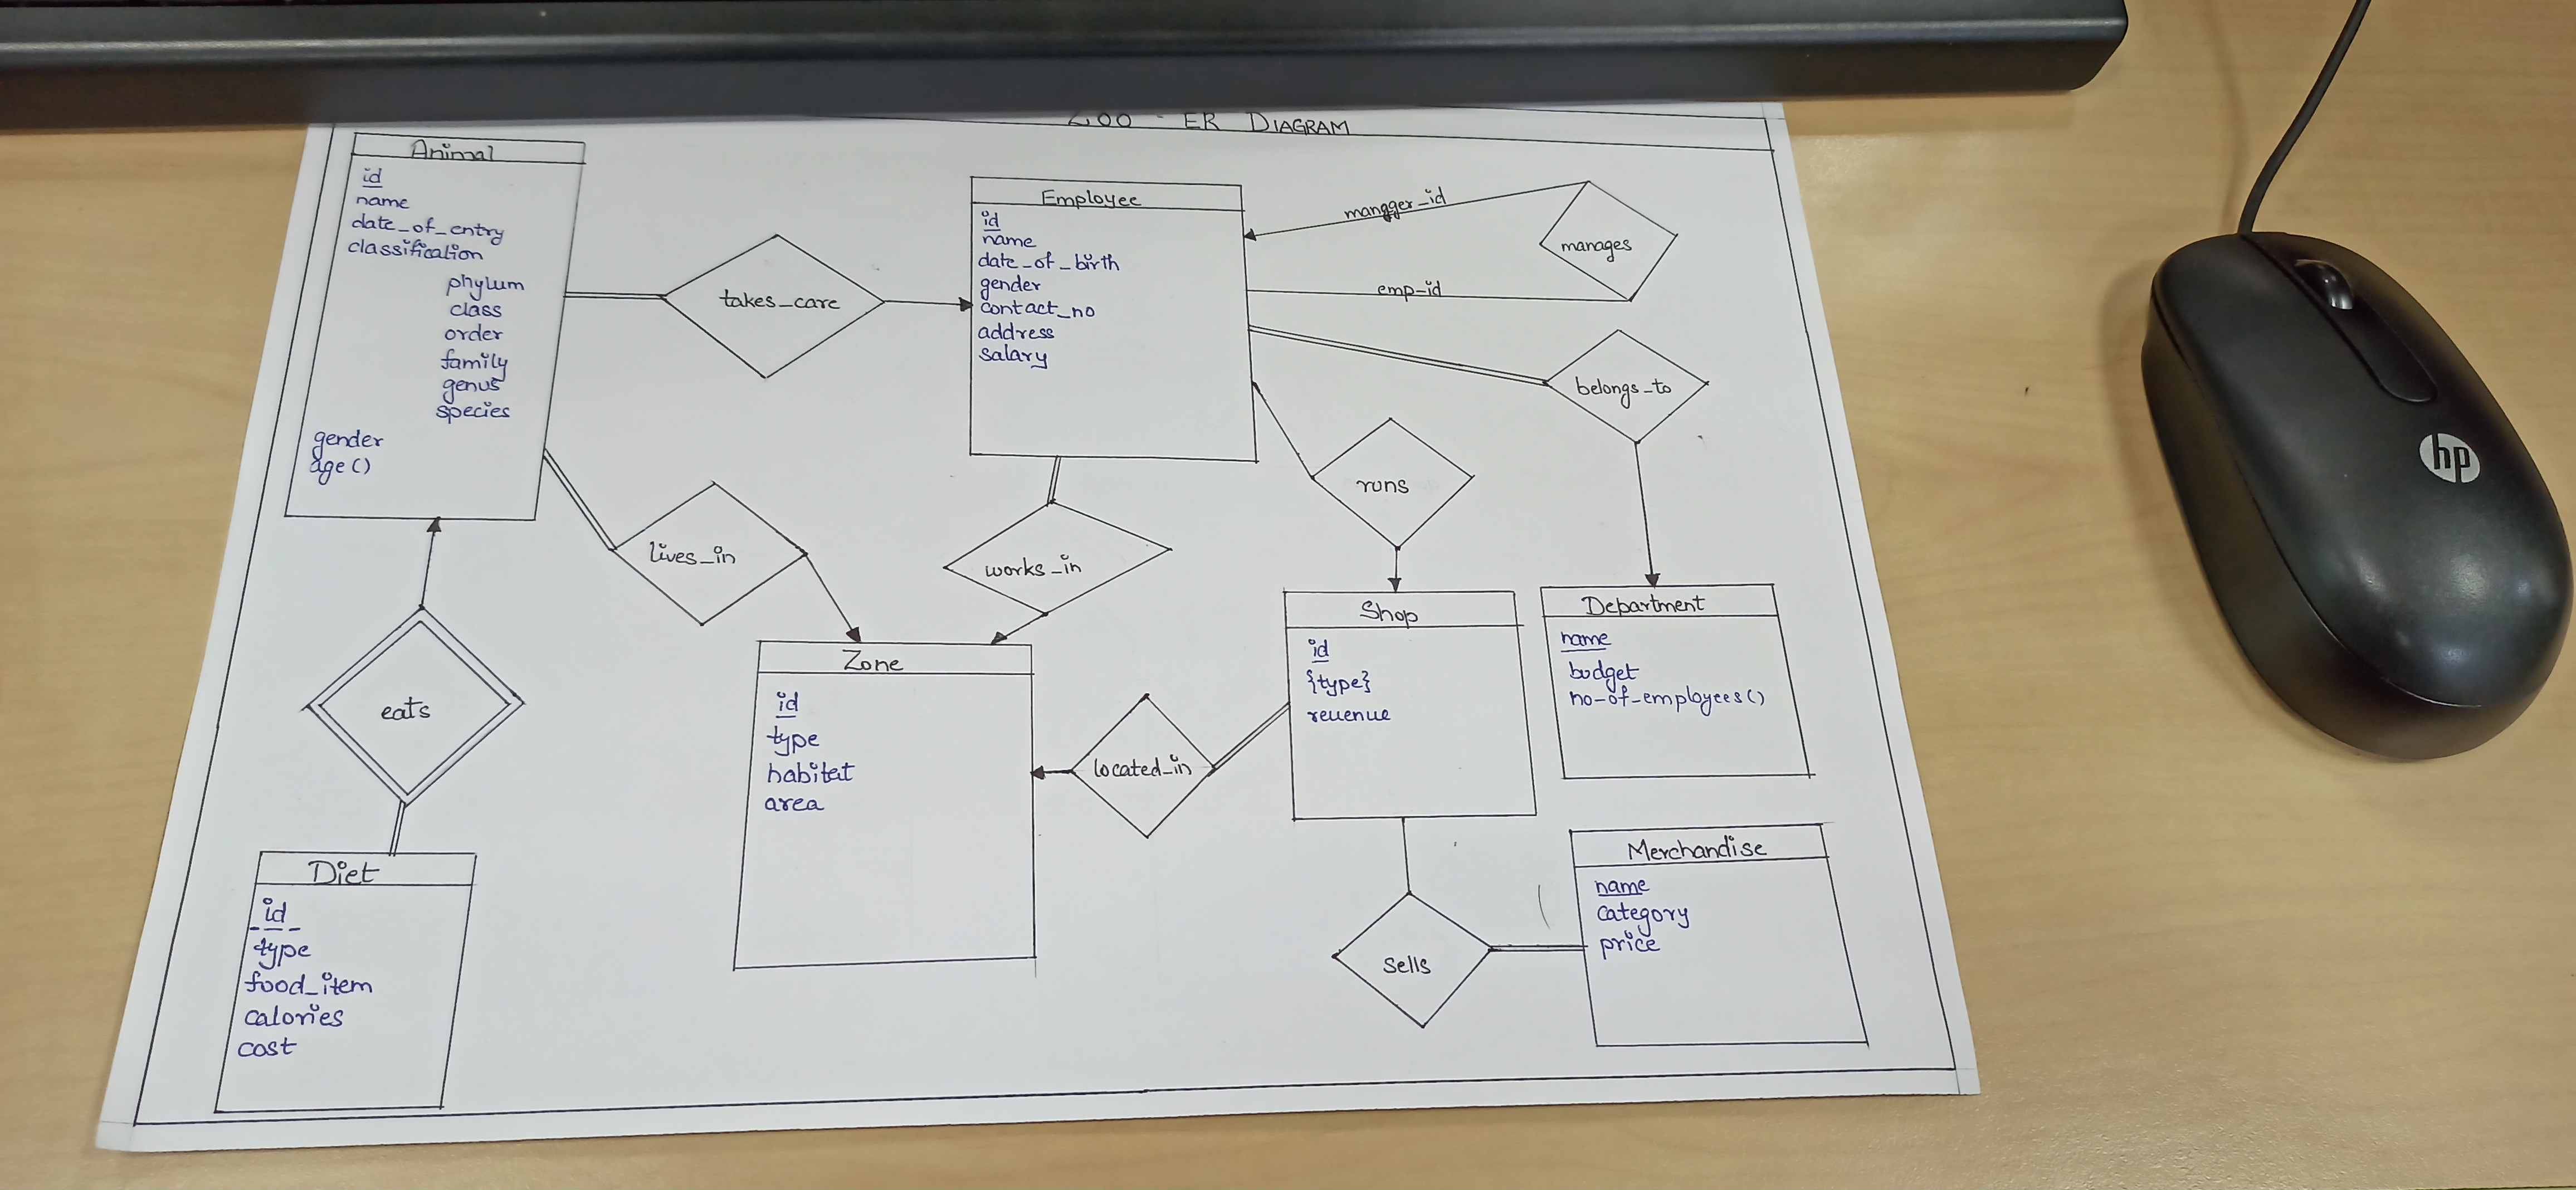 ZOO - ER DIAGRAM
Animal
id
name
date_of_entry
classification
phylum
class
order
family
genus
species
gender
age()
takes_care
Employee
id
name
date_of_birth
gender
contact_no
address
salary
mangger_id
manages
emp-id
belongs_to
runs
lives_in
works_in
eats
Zone
id
type
habitat
area
located_in
Shop
id
{type}
revenue
Department
name
budget
no-of-employees()
Diet
id
type
food_item
calories
cost
sells
Merchandise
name
category
price
hp